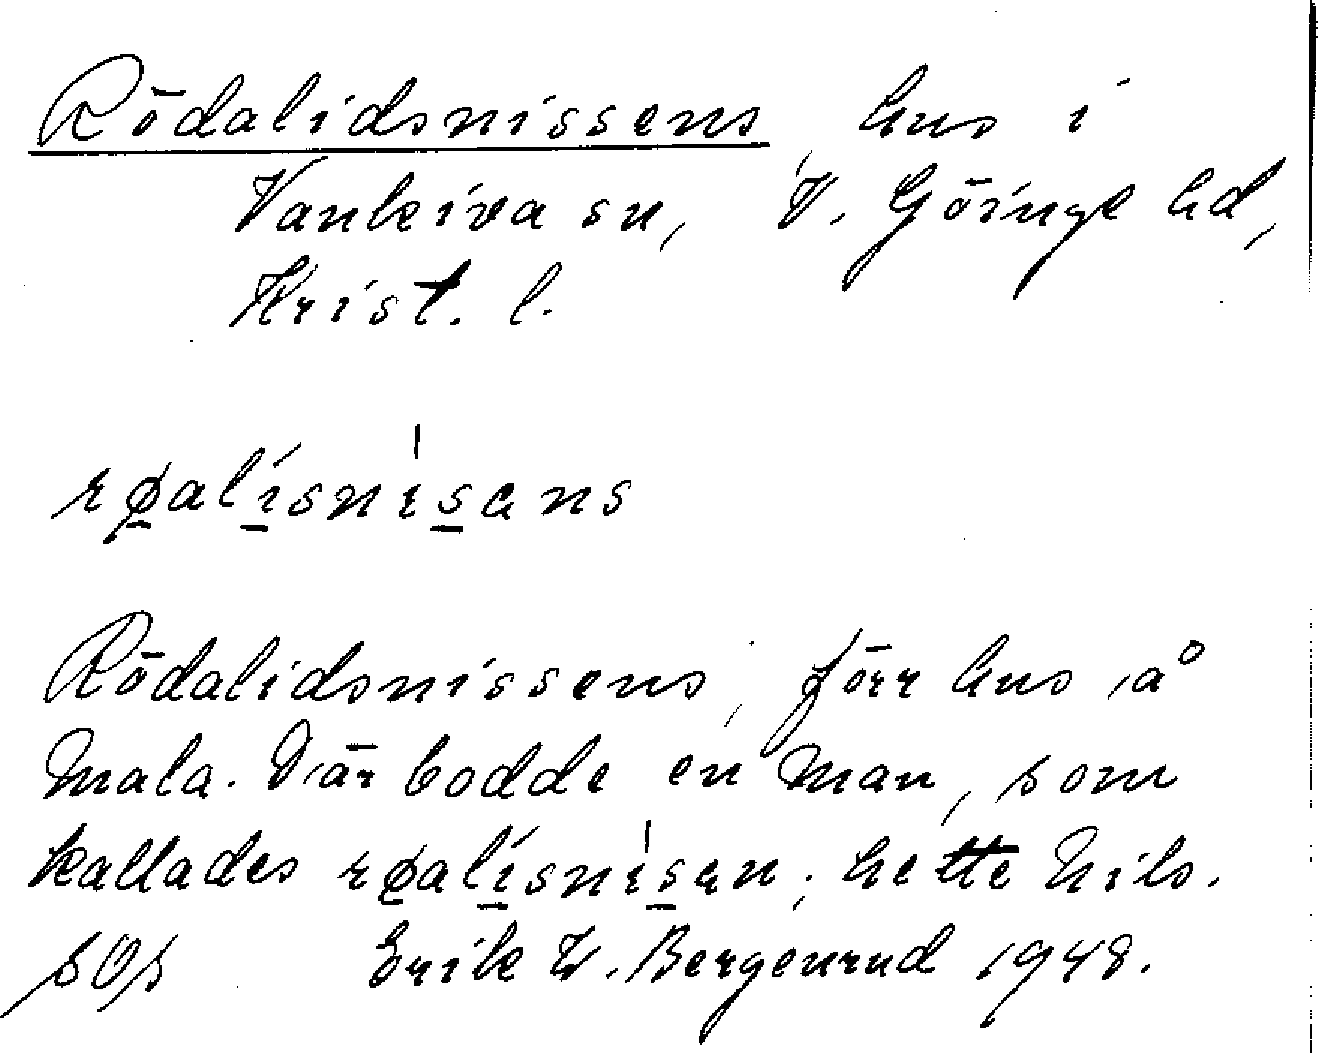 Rödalidsnissens, hus i
Vankiva sn, V. Göinge hd,
Krist. l.
rø̠alí̠sni̍s̠ɐns
Rödalidsnissens, förr hus å
Mala. Där bodde en man, som
kallades rø̠alí̠sni̍s̠ɐn; hette Nils.
Erik W. Bergenrud 1948.